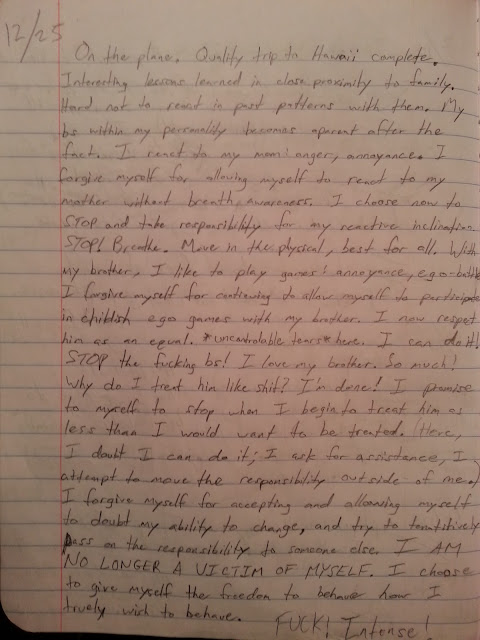 12/25
On the plane. Quality trip to Hawaii complete.
Interesting lessons learned in close proximity to family.
Hard not to react in past patterns with them. My
bs within my personality becomes aparent after the
fact. I react to my mom: anger, annoyance. I
forgive myself for allowing myself to react to my
mother without breath, awareness. I choose now to
STOP and take responsibility for my reactive inclination.
STOP! Breathe. Move in the physical, best for all. With
my brother, I like to play games: annoyance, ego-battle
I forgive myself for continuing to allow myself to participate
in childish ego games with my brother. I now respect
him as an equal. *uncontrolable tears* here. I can do it!
STOP the fucking bs! I love my brother. So much!
Why do I treat him like shit? I'm done! I promise
to myself to stop when I begin to treat him as
less than I would want to be treated. (Here,
I doubt I can do it; I ask for assistance, I
attempt to move the responsibility outside of me.)
I forgive myself for accepting and allowing myself
to doubt my ability to change, and try to
pass on the responsibility to someone else. I AM
NO LONGER A VICTIM OF MYSELF. I choose
to give myself the freedom to behave how I
truely wish to behave.
FUCK! Intense!